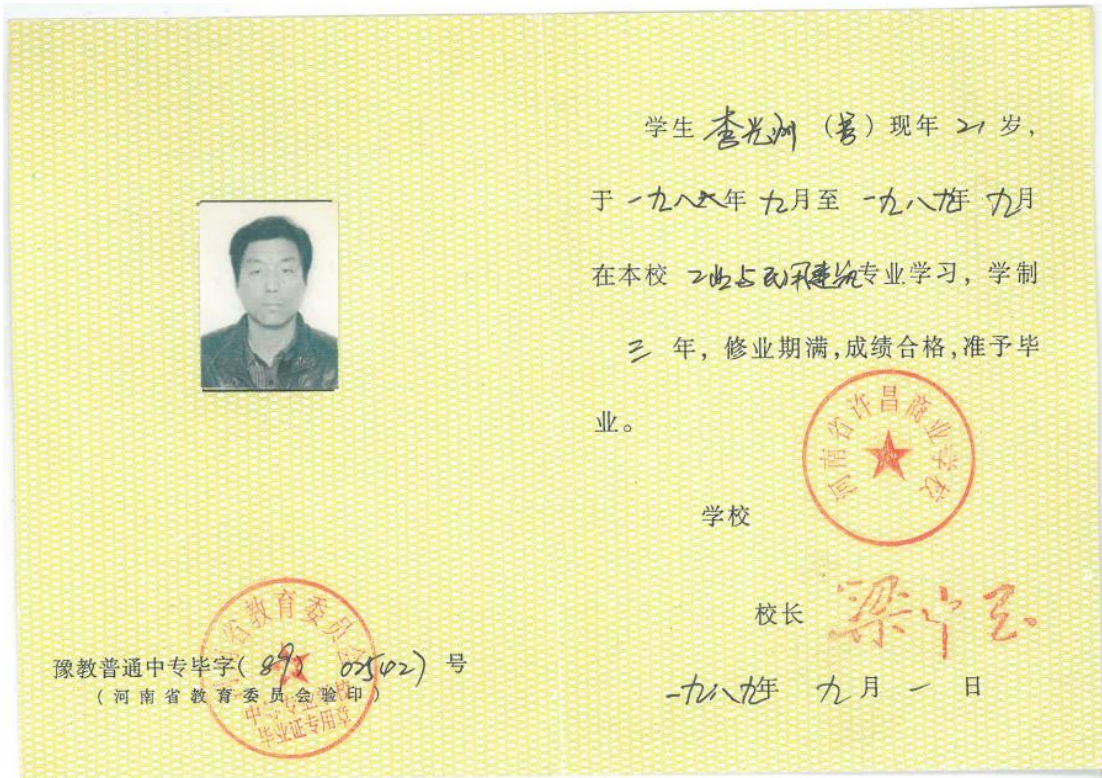 学生 李光洲 （男）现年 21 岁，
于 一九八六年 九月至 一九八九年 九月
在本校 工业与民用建筑专业学习，学制
三 年，修业期满，成绩合格，准予毕
业。
河南省许昌商业学校
学校
校长 梁
一九八九年 九月 一 日
河南省教育委员会
豫教普通中专毕字（89）02542）号
（河南省教育委员会验印）
中等专业学校
毕业证专用章